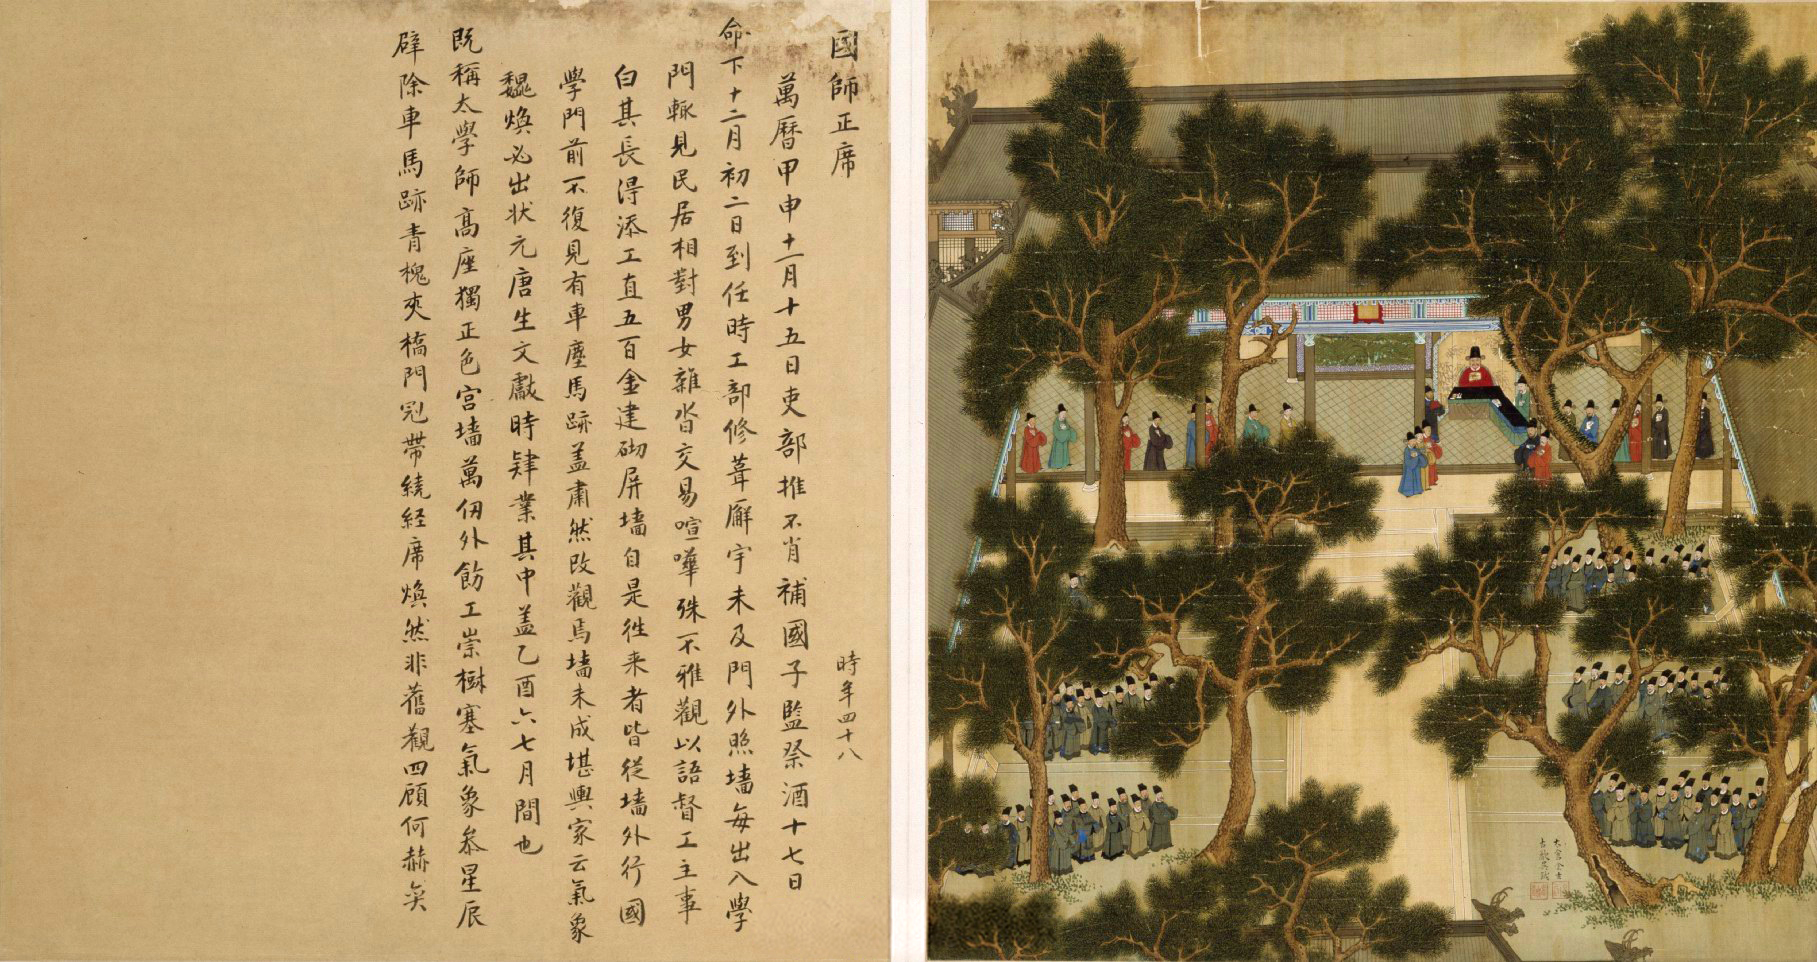 國師正席
時年四十八
萬曆甲申十一月十五日吏部推不肖補國子監祭酒十七日
命下十二月初二日到任時工部修葺廨宇未及門外照墻每出入學
門輒見民居相對男女雜沓交易喧嘩殊不雅觀以語督工主事
白其長得添工直五百金建砌屏墻自是徃来者皆從墻外行國
學門前不復見有車塵馬跡盖肅然改觀焉墻未成堪輿家云氣象
巍煥必出状元唐生文獻時肄業其中盖乙酉六七月間也
既稱太學師高座獨正色宫墻萬仞外飭工崇樹塞氣象叅星辰
辟除車馬跡青槐夾橋門冠帶繞经席煥然非舊觀四顧何赫奕